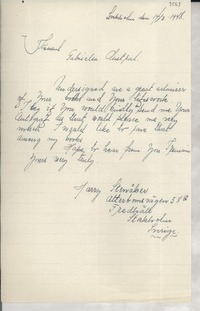 Stockholm den 14/2 1948.
Gabriela Mistral
Undersigned are a great admirer
of Your books and Your lifework
I beg to You would kindly send me Your
Autograf as that would please me very
much I would like to have that
among my books
Hope to hear from You I remain
Yours very truly
Harry
Stockholm
Sverige